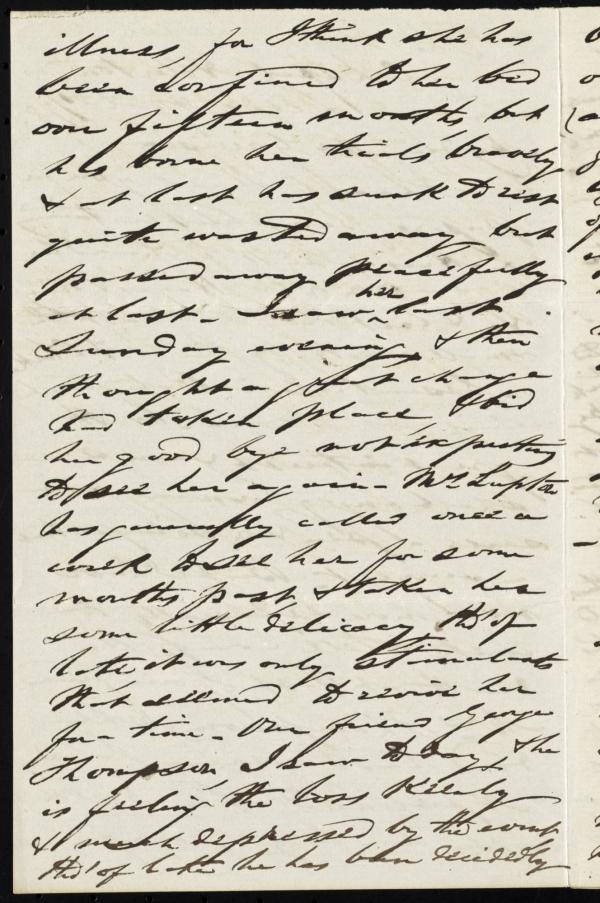 illness, for I think she has
been confined to her bed
over fifteen months, but
has borne her trials bravely
& at last has sunk to rest
quite wasted away, but
passed away peacefully
at last - I saw her last
Sunday evening, & then
thought a great change
had taken place, & bid
her good bye not expecting
to see her again - Mrs Lupton
has generally called once a
week to see her for some
months past, & taken her
some little delicacy, tho' of
late it was only stimulants
that seemed to revive her
for a time - Our friend George
Thompson, I saw to day, & he
is feeling the loss keenly
& much depressed by the event
tho' of late he has been decidedly